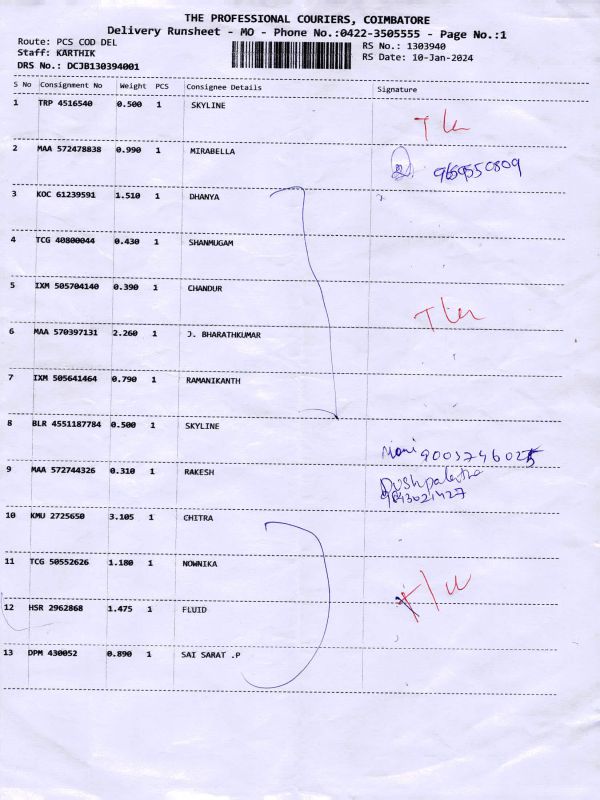 THE PROFESSIONAL COURIERS, COIMBATORE
Delivery Runsheet - MO - Phone No.:0422-3505555 - Page No.:1
Route: PCS COD DEL
RS No.: 1303940
Staff: KARTHIK
RS Date: 10-Jan-2024
DRS No.: DCJB130394001
S No Consignment No Weight PCS Consignee Details Signature
1 TRP 4516540 0.500 1 SKYLINE
2 MAA 572478838 0.990 1 MIRABELLA
9659550809
3 KOC 61239591 1.510 1 DHANYA
4 TCG 40800044 0.430 1 SHANMUGAM
5 IXM 505704140 0.390 1 CHANDUR
6 MAA 570397131 2.260 1 J. BHARATHKUMAR
7 IXM 505641464 0.790 1 RAMANIKANTH
8 BLR 4551187784 0.500 1 SKYLINE
Mani 9003746025
9 MAA 572744326 0.310 1 RAKESH
9843021427
10 KMU 2725650 3.105 1 CHITRA
11 TCG 50552626 1.180 1 NOWNIKA
12 HSR 2962868 1.475 1 FLUID
13 DPM 430052 0.890 1 SAI SARAT .P